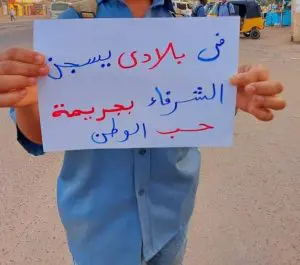 فى بلادى يسجن
الشرفاء بجريمة
حب الوطن